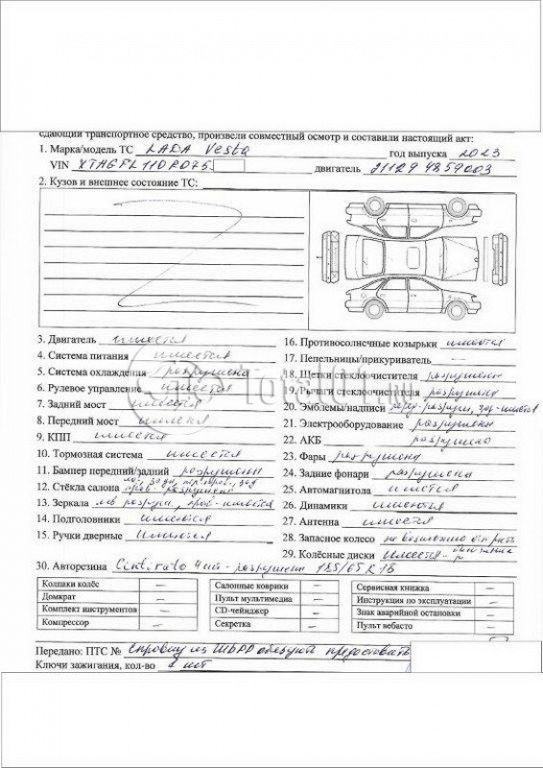 сдающий транспортное средство, произвели совместный осмотр и составили настоящий акт:
1. Марка/модель ТС LADA Vesta год выпуска 2023
VIN XTAGFL110P075 двигатель 21129 4859003
2. Кузов и внешнее состояние ТС:
3. Двигатель имеется
4. Система питания имеется
5. Система охлаждения разрушена
6. Рулевое управление имеется
7. Задний мост имеется
8. Передний мост имеется
9. КПП имеется
10. Тормозная система имеется
11. Бампер передний/задний разрушен
12. Стёкла салона зад
прав разрушено
13. Зеркала лев разруш, прав-имеется
14. Подголовники имеются
15. Ручки дверные имеются
16. Противосолнечные козырьки имеются
17. Пепельницы/прикуриватель —
18. Щетки стеклоочистителя разрушены
19. Рычаги стеклоочистителя разрушены
20. Эмблемы/надписи разруш, зад-имеется
21. Электрооборудование разрушено
22. АКБ разрушено
23. Фары разрушена
24. Задние фонари разрушена
25. Автомагнитола имеется
26. Динамики имеются
27. Антенна имеется
28. Запасное колесо не возможно открыть
29. Колёсные диски имеется-
30. Авторезина Cinturato 4шт - разрушены 185/65 R 15
Колпаки колёс —
Домкрат —
Комплект инструментов —
Компрессор —
Салонные коврики —
Пульт мультимедиа —
CD-чейнджер —
Секретка —
Сервисная книжка —
Инструкция по эксплуатации —
Знак аварийной остановки —
Пульт вебасто —
Передано: ПТС № справку из обязуют предоставить
Ключи зажигания, кол-во 1 шт